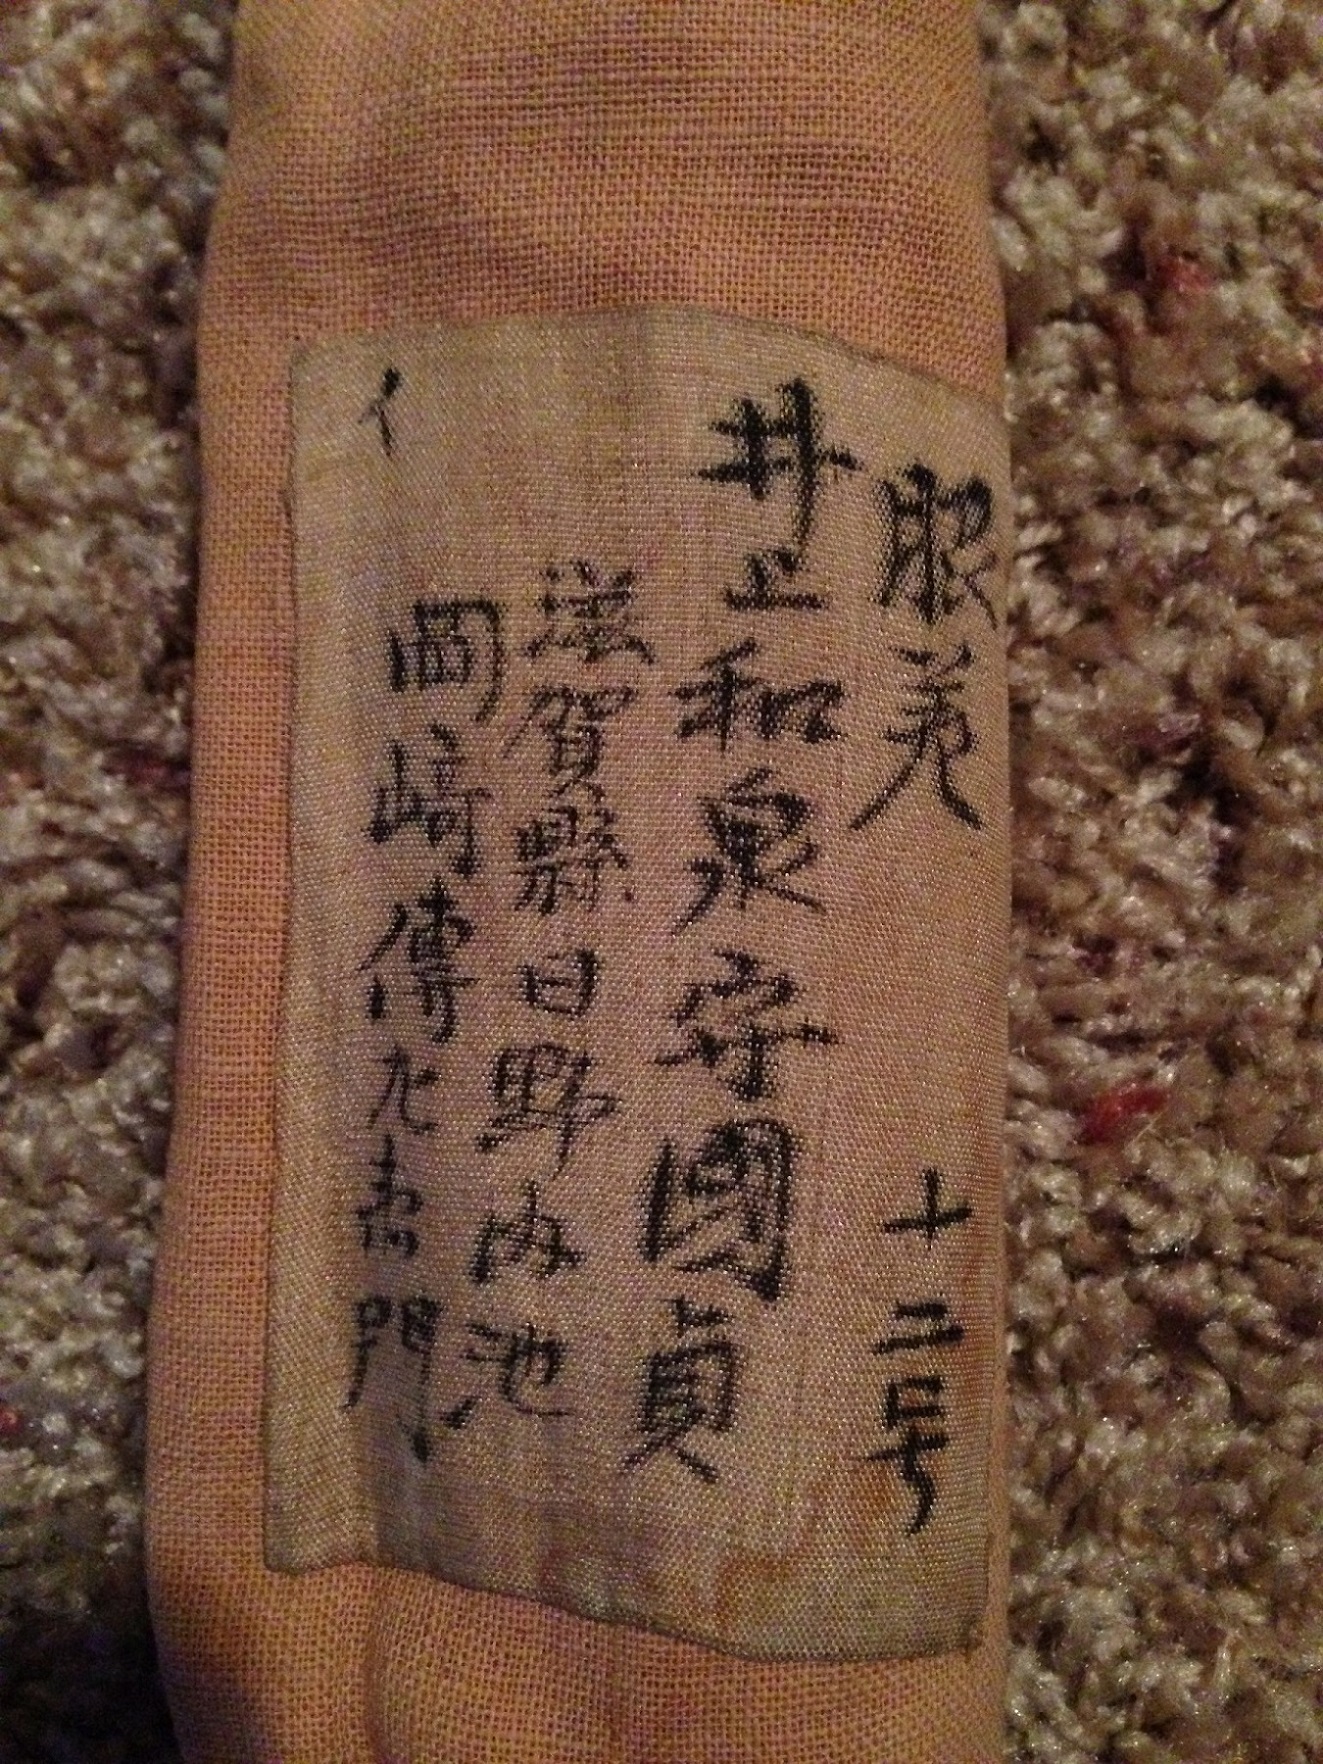 十二号
井上和泉守國貞
滋賀縣日野内池
岡崎傳九右門
イ